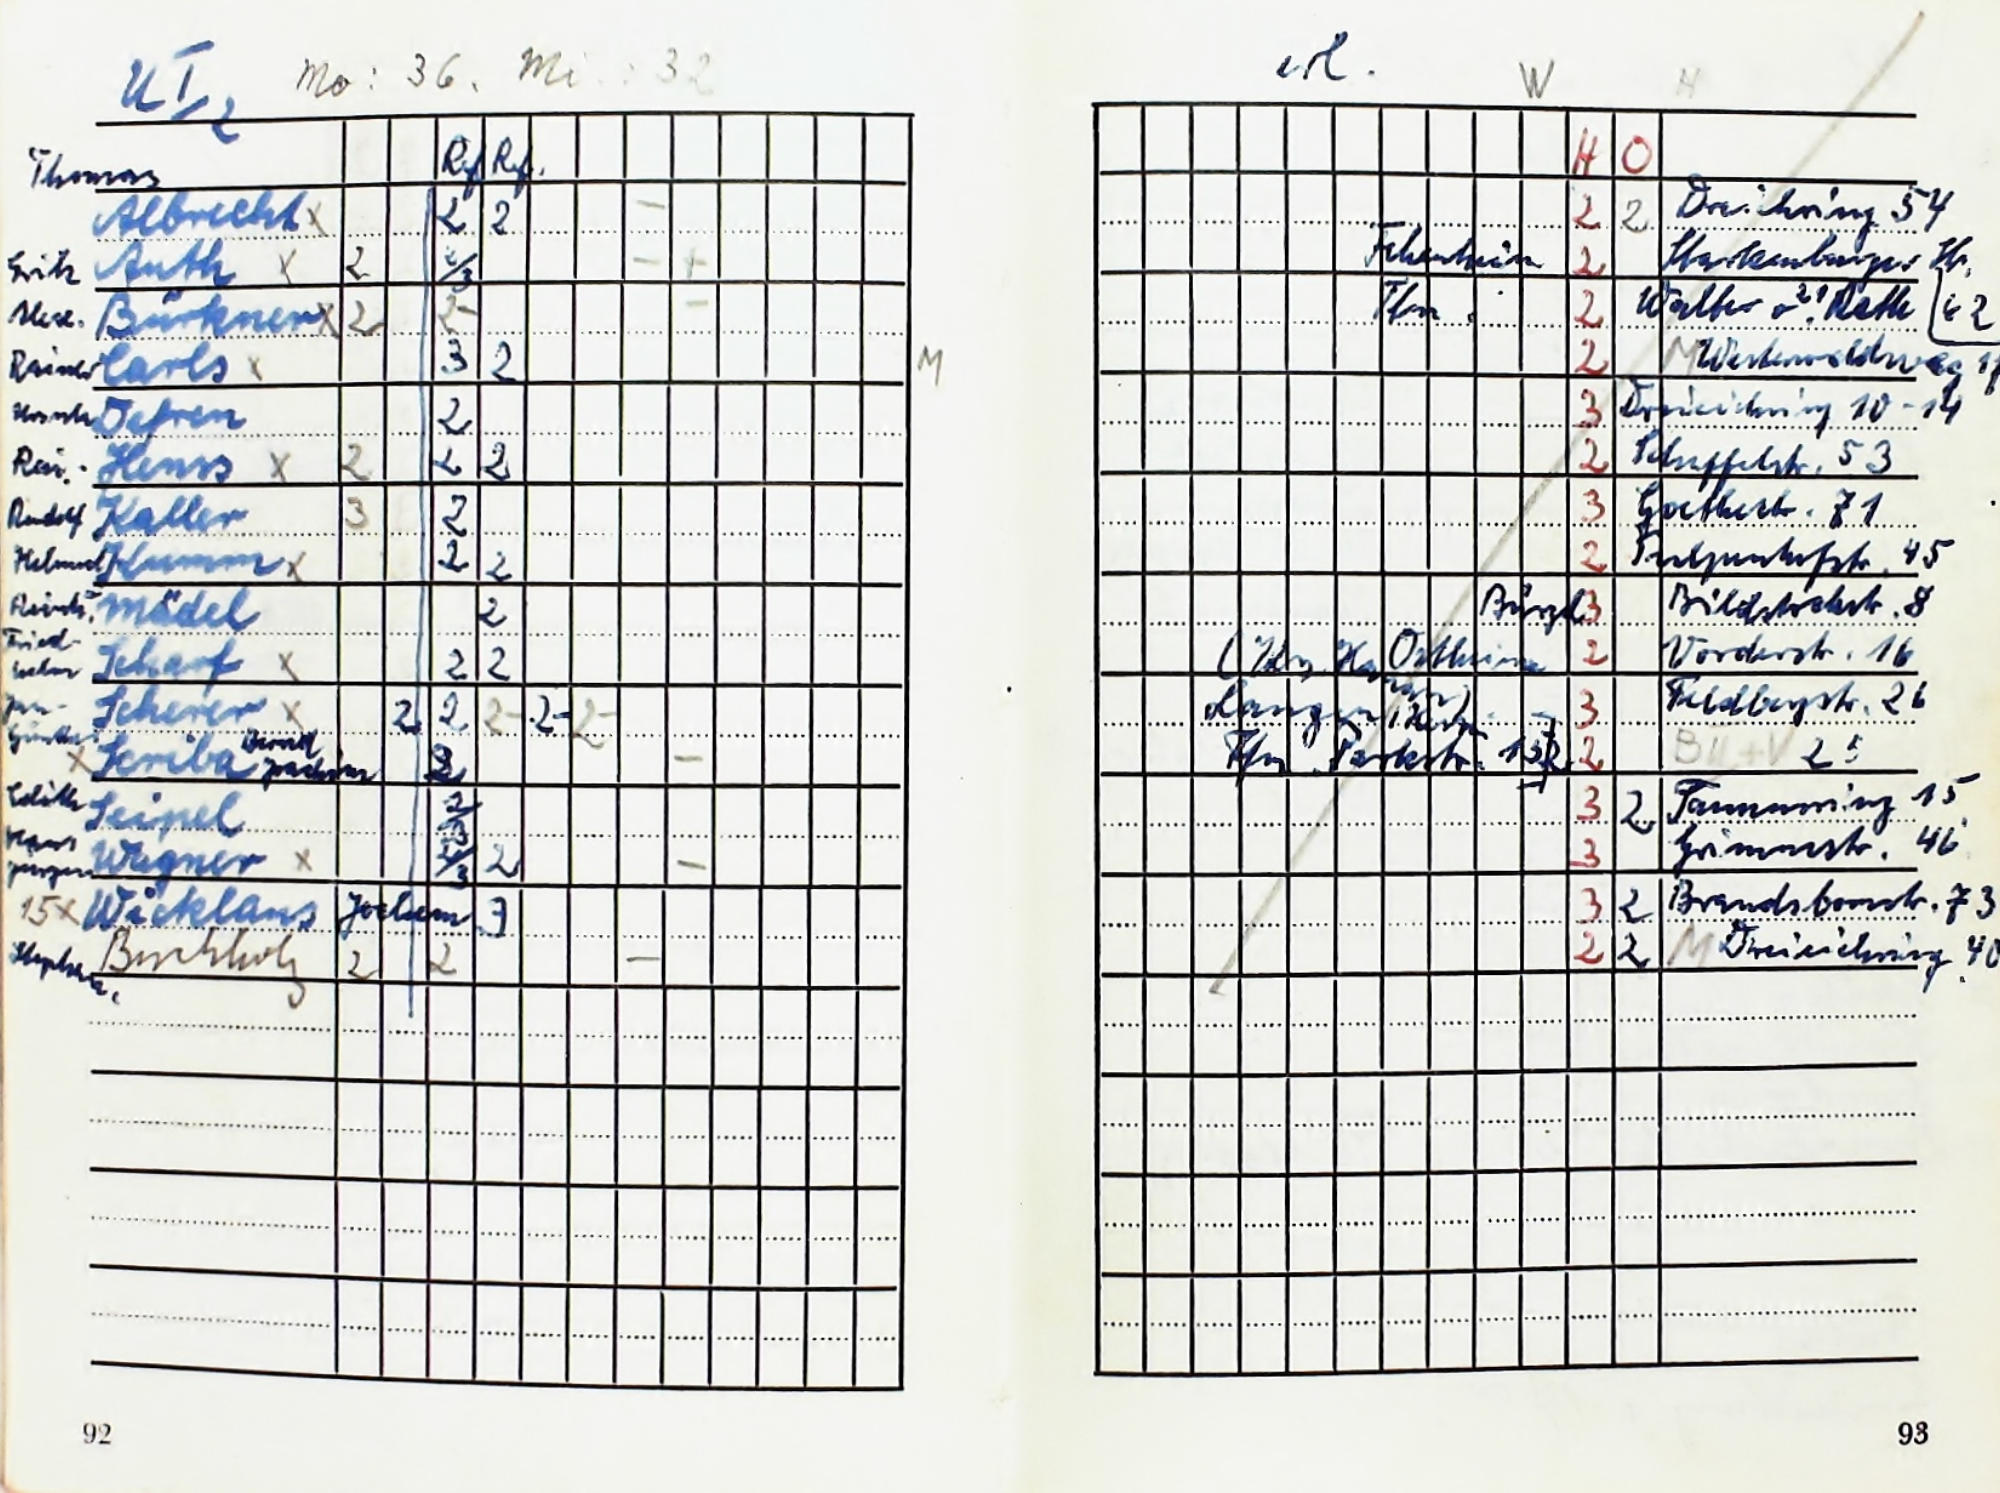 UI/2 Mo: 36. Mi: 32
Ref Ref.
Thomas Albrecht x 2 2 –
Auth x 2 2/3 – +
Bürkner x 2 2- –
Rainer Carls x 3 2 M
Defren 2
Henss x 2 2 2
Rudolf Kaller 3 2
Helmut Kumm x 2 2
Mädel 2
Friedhelm Scharf x 2 2
Scherer x 2 2 2- 2- 2-
x Scriba Bernd Joachim 2 –
Edith Seipel 2/3
Hans Jürgen Wagner x 2/3 2 –
15 x Wicklaus Jochem 3
Buchholz 2 2 –
92
erl. W H
H O
2 2 Dreieichring 54
Fechenheim 2 Starkenburger Str. 62
Ffm. 2 Walter v. Rath
2 M Westerwaldweg
3 Dreieichring 10-14
2 Scheffelstr. 53
3 Goethestr. 71
2 Tulpenhofstr. 45
Bürgel 3 Bildstockstr. 8
Ostheim 2 Vorderstr. 16
Langen 3 Feldbergstr. 26
Ffm Parkstr. 13 2
3 2 Taunusring 15
3 Grimmstr. 46
3 2 Brandsbornstr. 73
2 2 M Dreieichring 40
93